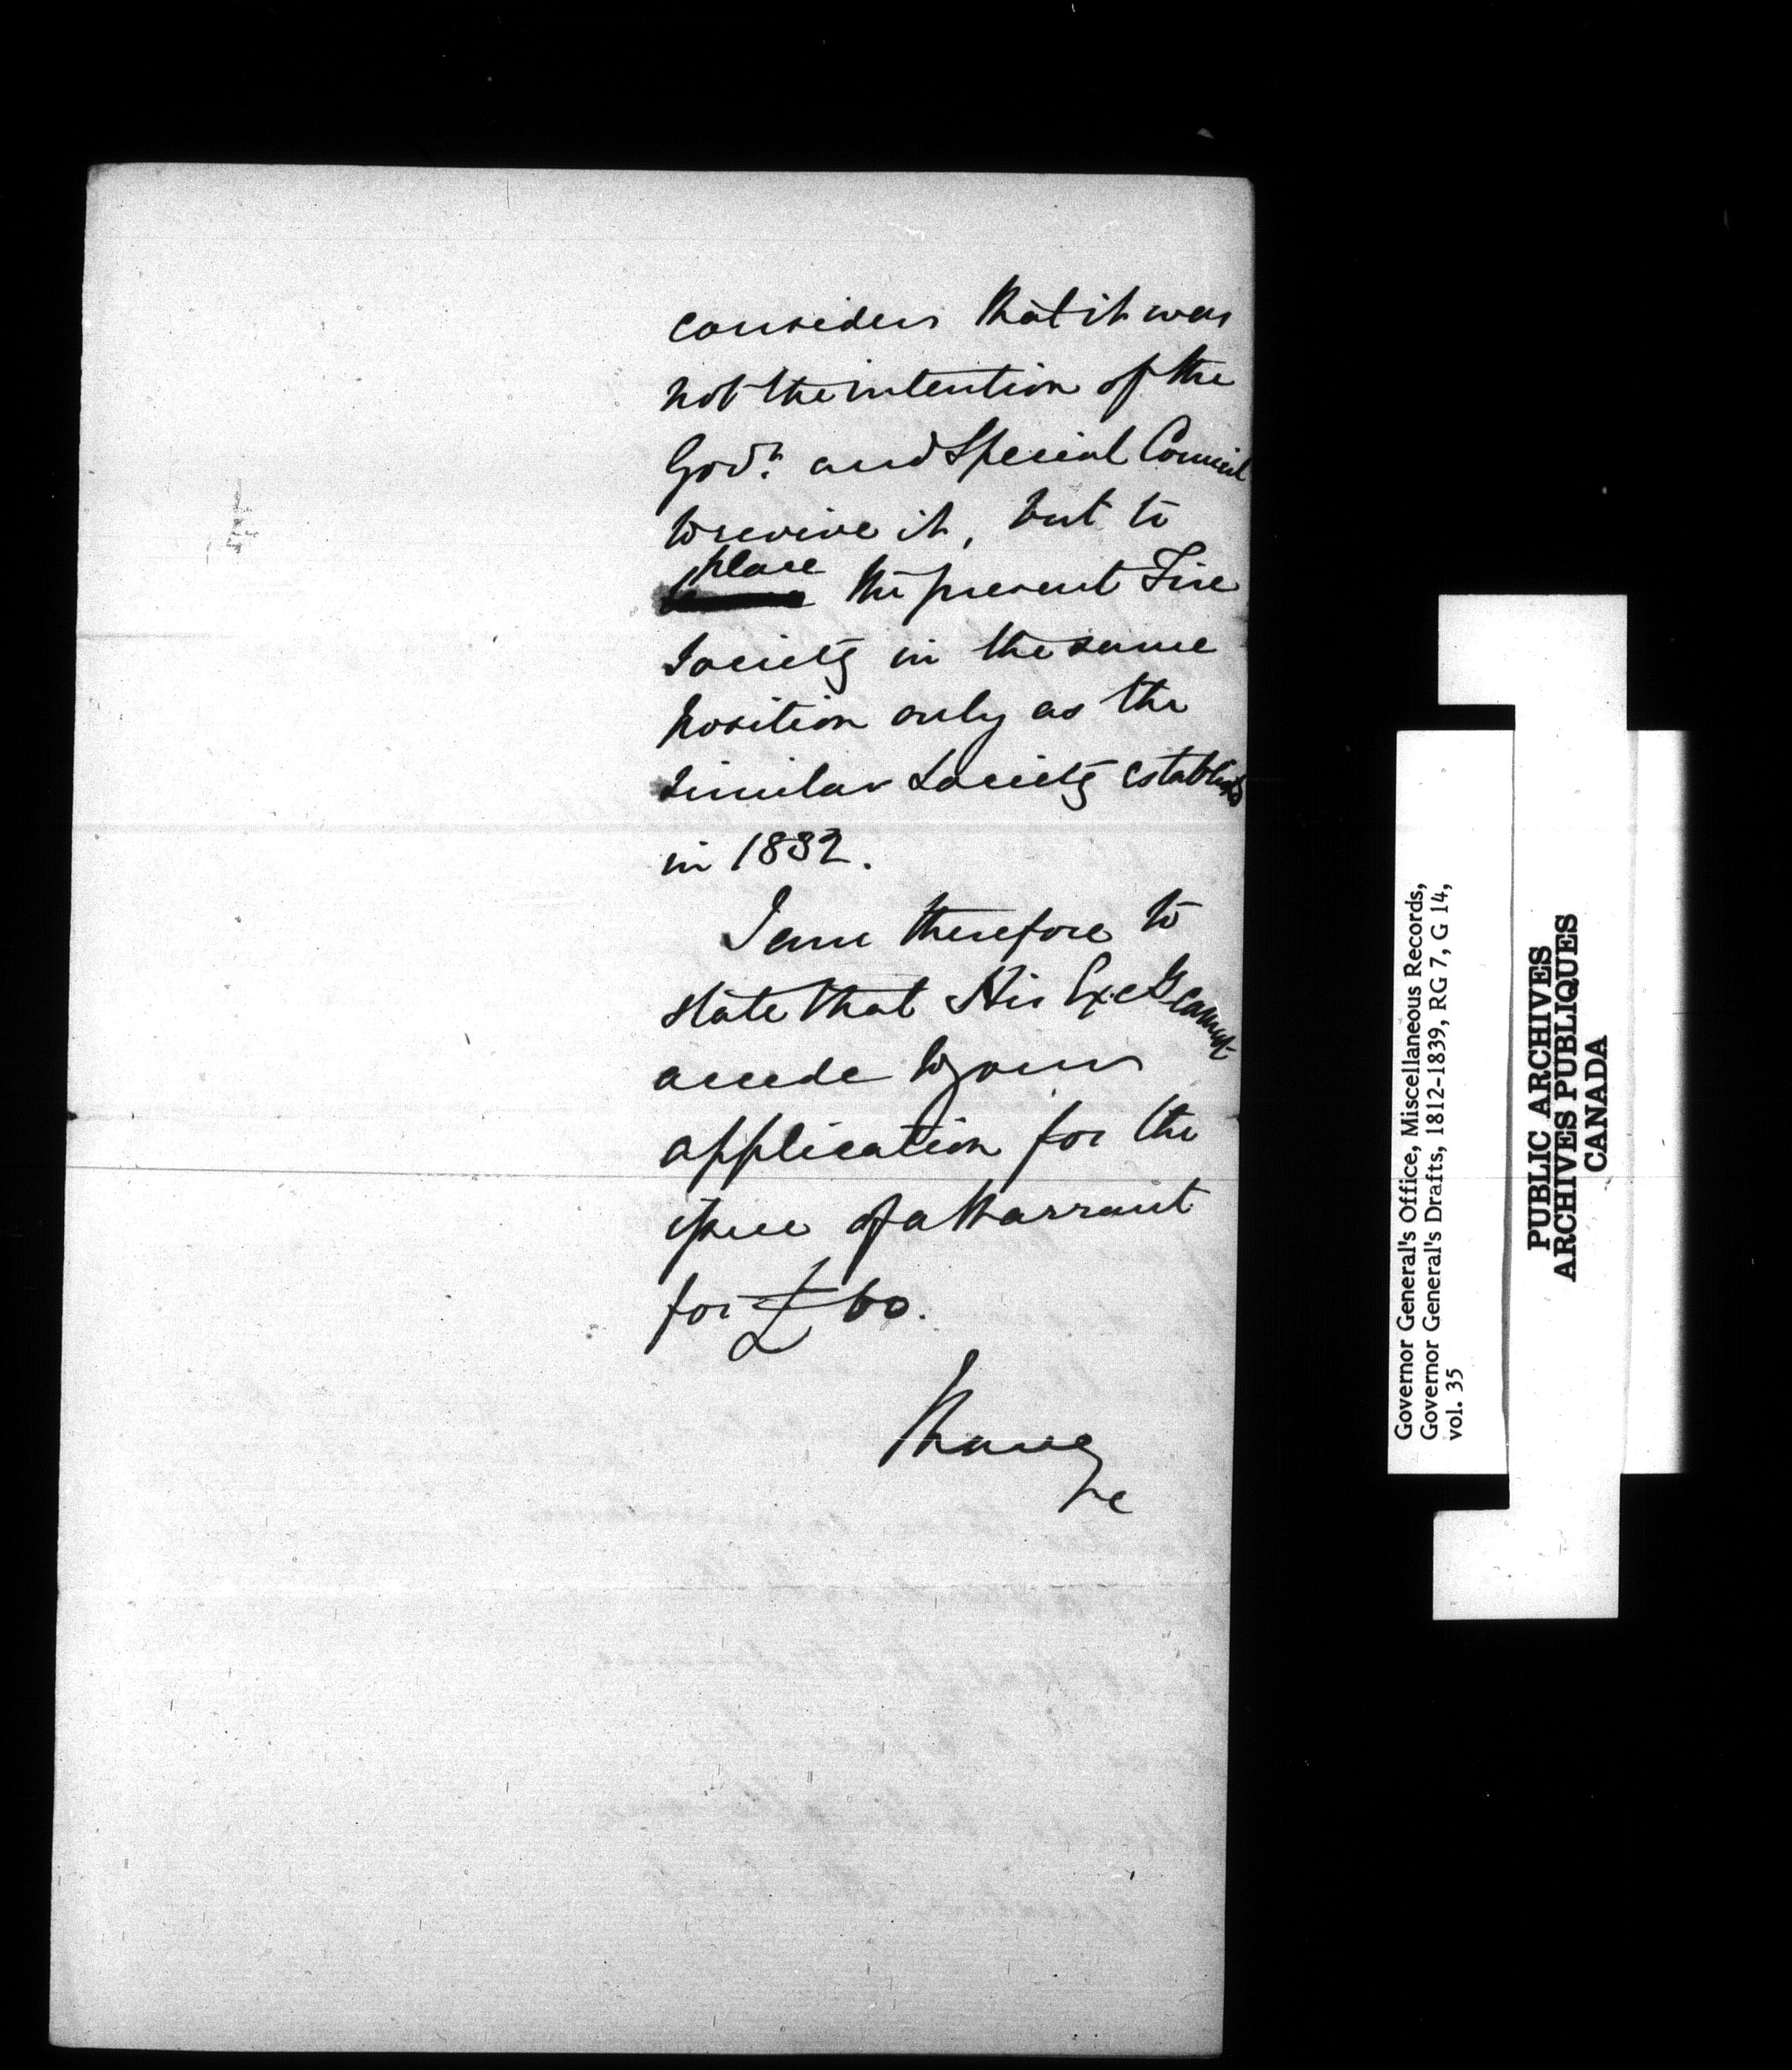 considers that it was
not the intention of the
Govr. and Special Council
to revive it, but to
place
the present Fire
Society in the same
position only as the
similar Society established
in 1832.
I am therefore to
state that His Excy cannot
accede to your
application for the
issue of a Warrant
for £60.
I have
&c
Governor General's Office, Miscellaneous Records,
Governor General's Drafts, 1812-1839, RG 7, G 14,
vol. 35
PUBLIC ARCHIVES
ARCHIVES PUBLIQUES
CANADA